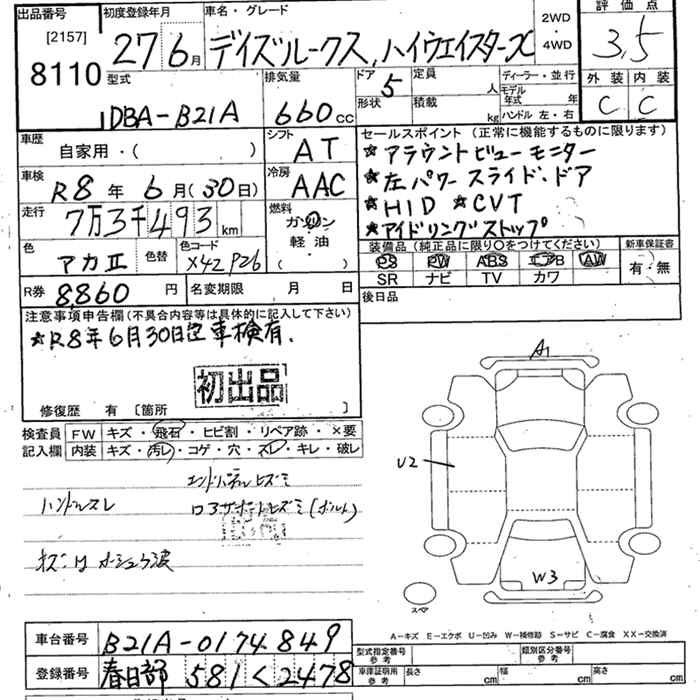 出品番号 初度登録年月 車名・グレード 2WD・4WD 評価点
[2157]
8110 27 6月 デイズルークス,ハイウェイスターX 3.5
型式 排気量 ドア 5 定員 人 ディーラー・並行 外装 内装
DBA-B21A 660 CC 形状 積載 kg モデル年式 年 ハンドル 左・右 C C
車歴 自家用・( ) シフト AT セールスポイント (正常に機能するものに限ります)
★アラウンドビューモニター
車検 R8年 6月(30日) 冷房 AAC ★左パワースライド・ドア
★HID ★CVT
走行 7万3千493km 燃料 ガソリン 軽油 ( ・ ) ★アイドリングストップ
色 アカII 色替 色コード X42 P26 装備品(純正品に限り○をつけてください) 新車保証書
PS PW ABS エアB AW 有・無
SR ナビ TV カワ
R券 8,860 円 名変期限 月 日 後日品
注意事項申告欄(不具合内容等は具体的に記入して下さい)
★R8年6月30日迄車検有.
初出品
修復歴 有 [箇所 ]
検査員 FW キズ・飛石・ヒビ割・リペア跡・×要
記入欄 内装 キズ・汚レ・コゲ・穴・スレ・キレ・破レ
エンドパネルヒズミ
ハンドルスレ
A1
U2
W3
スペア
A-キズ E-エクボ U-凹み W-補修跡 S-サビ C-腐食 XX-交換済
車台番号 B21A-0174849 型式指定番号 参考 類別区分番号 参考
登録番号 春日部 581 く 2478 車庫証明用 参考 長さ cm 幅 cm 高さ cm